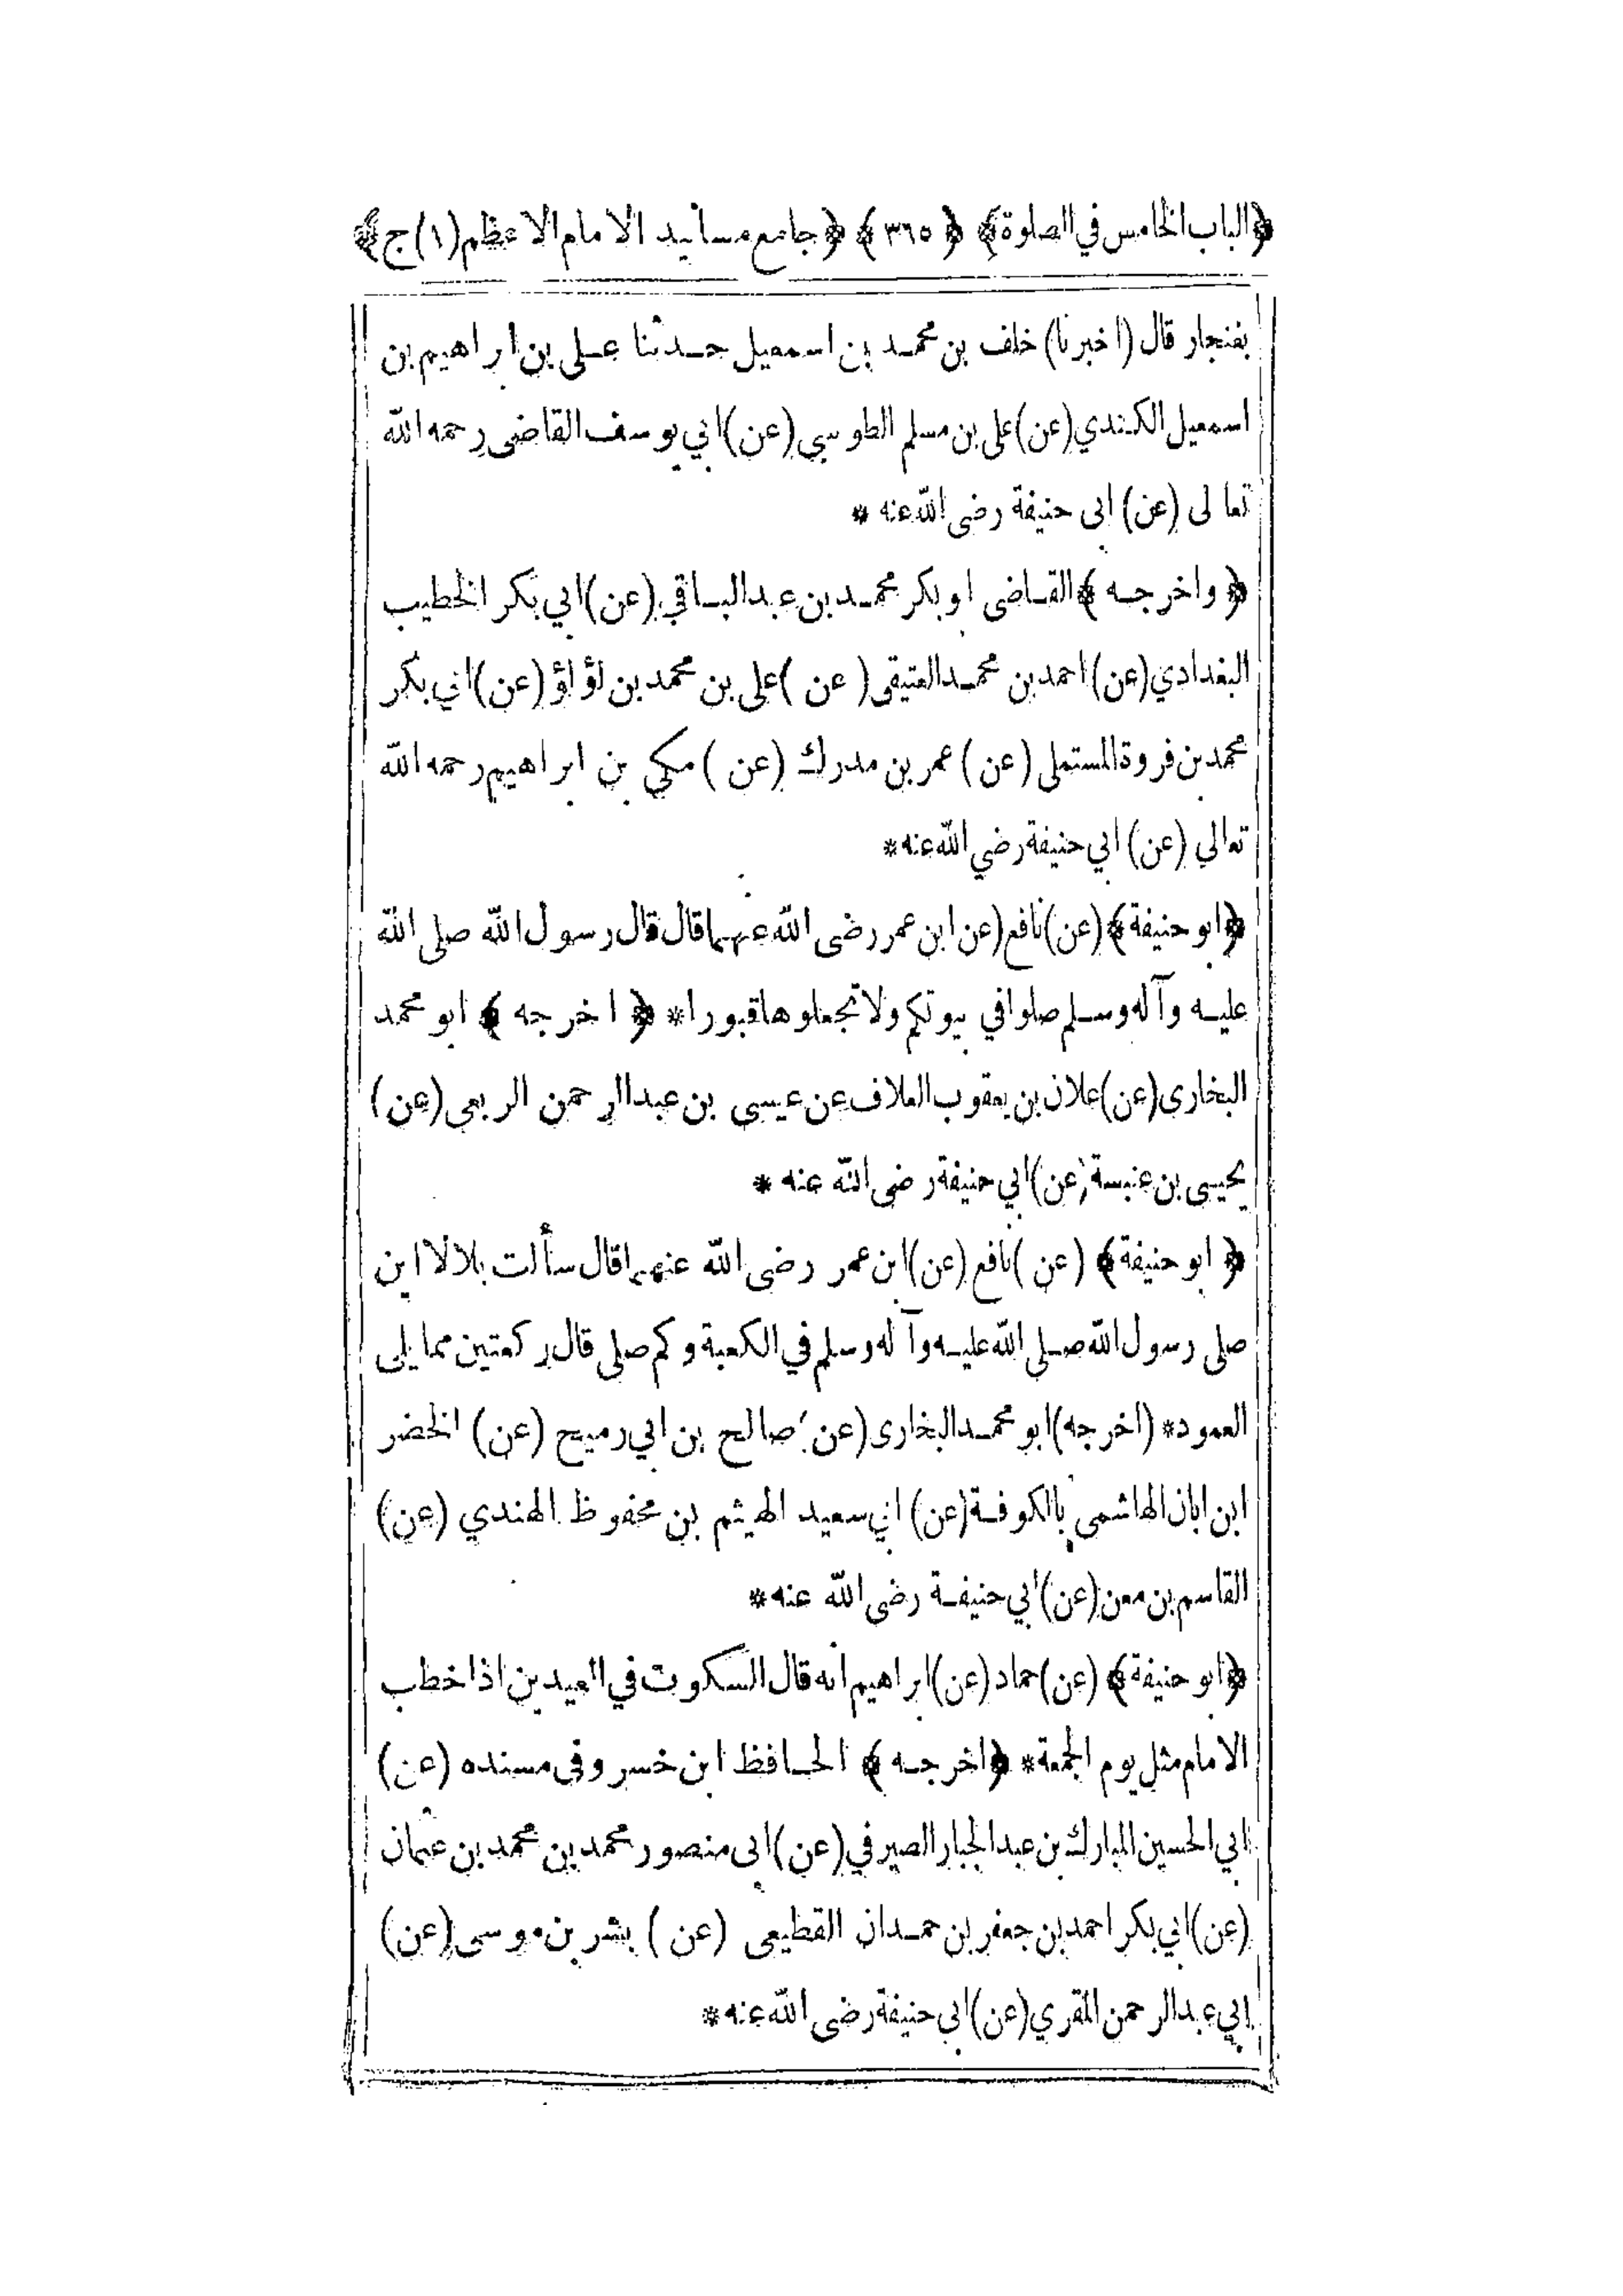 ﴿الباب الخامس في الصلوة﴾ ﴿٣٦٥﴾ ﴿جامع مسانيد الامام الاعظم(١)ج﴾
بغنجار قال (اخبرنا) خلف بن محمد بن اسمعيل حدثنا على بن ابراهيم بن
اسمعيل الكندي (عن) على بن مسلم الطوسي (عن) ابي يوسف القاضى رحمه الله
تعالى (عن) ابى حنيفة رضى الله عنه *
﴿واخرجه﴾ القاضى ابوبكر محمد بن عبدالباقي (عن) ابي بكر الخطيب
البغدادي (عن) احمد بن محمد العتيقى (عن) على بن محمد بن لؤلؤ (عن) ابي بكر
محمد بن فروة المستملى (عن) عمر بن مدرك (عن) مكي بن ابراهيم رحمه الله
تعالي (عن) ابي حنيفة رضي الله عنه *
﴿ابو حنيفة﴾ (عن) نافع (عن ابن عمر رضى الله عنهما قال قال رسول الله صلى الله
عليه وآله وسلم صلوا في بيوتكم ولا تجعلوها قبورا * ﴿اخرجه﴾ ابو محمد
البخارى (عن) علان بن يعقوب العلاف عن عيسى بن عبدالرحمن الربعى (عن)
يحيى بن عنبسة (عن) ابي حنيفة رضى الله عنه *
﴿ابو حنيفة﴾ (عن) نافع (عن) ابن عمر رضى الله عنهما قال سألت بلالا اين
صلى رسول الله صلى الله عليه وآله وسلم في الكعبة وكم صلى قال ركعتين مما يلى
العمود * (اخرجه) ابو محمد البخارى (عن) صالح بن ابي رميح (عن) الخضر
ابن ابان الهاشمى بالكوفة (عن) ابي سعيد الهيثم بن محفوظ الهندي (عن)
القاسم بن معن (عن) ابي حنيفة رضى الله عنه *
﴿ابو حنيفة﴾ (عن) حماد (عن) ابراهيم انه قال السكوت في العيدين اذا خطب
الامام مثل يوم الجمعة * ﴿اخرجه﴾ الحافظ ابن خسرو فى مسنده (عن)
ابي الحسين المبارك بن عبدالجبار الصيرفي (عن) ابى منصور محمد بن محمد بن عثمان
(عن) ابي بكر احمد بن جعفر بن حمدان القطيعى (عن) بشر بن موسى (عن)
ابي عبدالرحمن المقري (عن) ابى حنيفة رضى الله عنه *